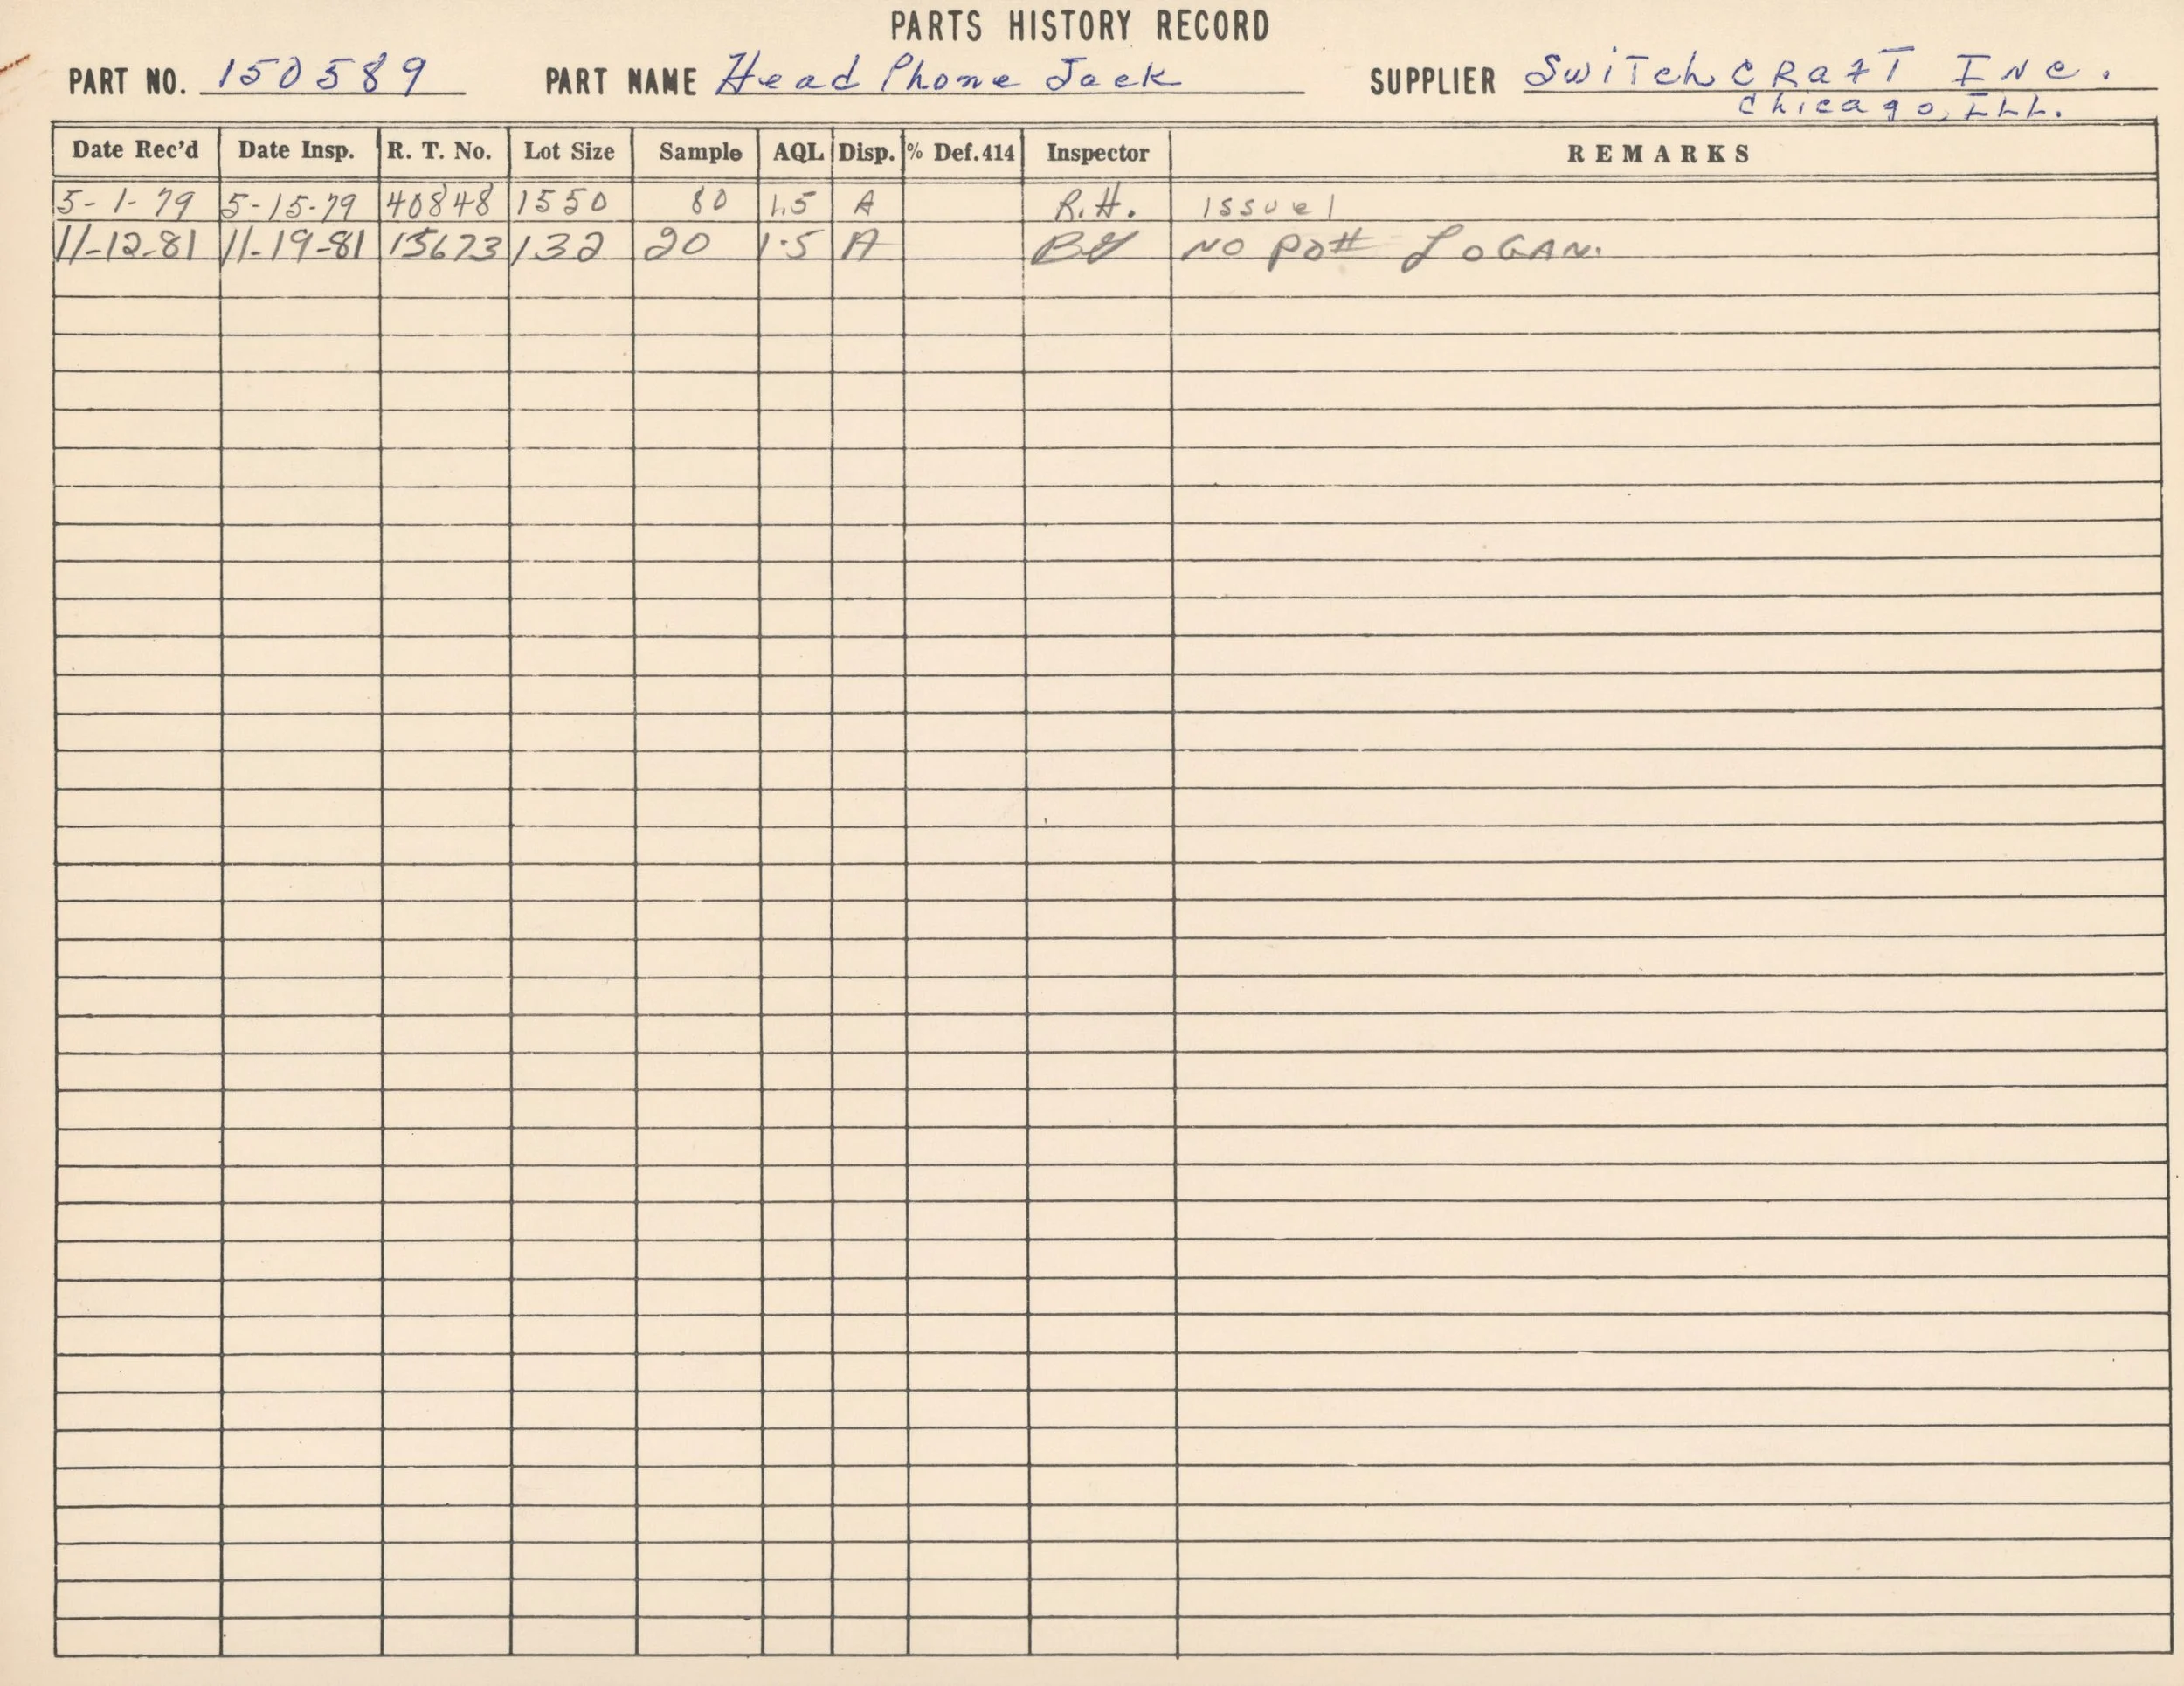 PARTS HISTORY RECORD
PART NO. 150589 PART NAME Head Phone Jack SUPPLIER SwiTchCRafT INc.
chicago, ILL.
Date Rec'd Date Insp. R. T. No. Lot Size Sample AQL Disp. % Def.414 Inspector REMARKS
5-1-79 5-15-79 40848 1550 80 1.5 A R.H. Issue 1
11-12-81 11-19-81 15673 132 20 1.5 A NO PO# LOGAN.